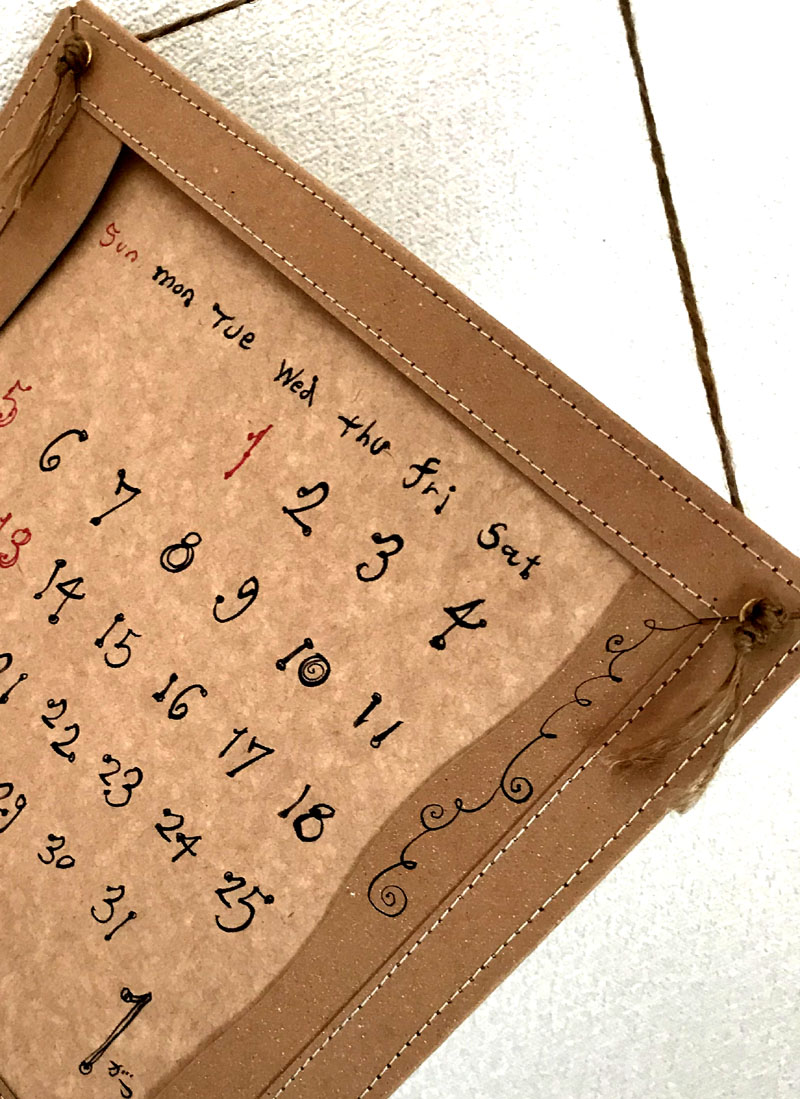 Sun mon Tue Wed thu fri Sat
1 2 3 4
5 6 7 8 9 10 11
13 14 15 16 17 18
21 22 23 24 25
29 30 31
7がつ